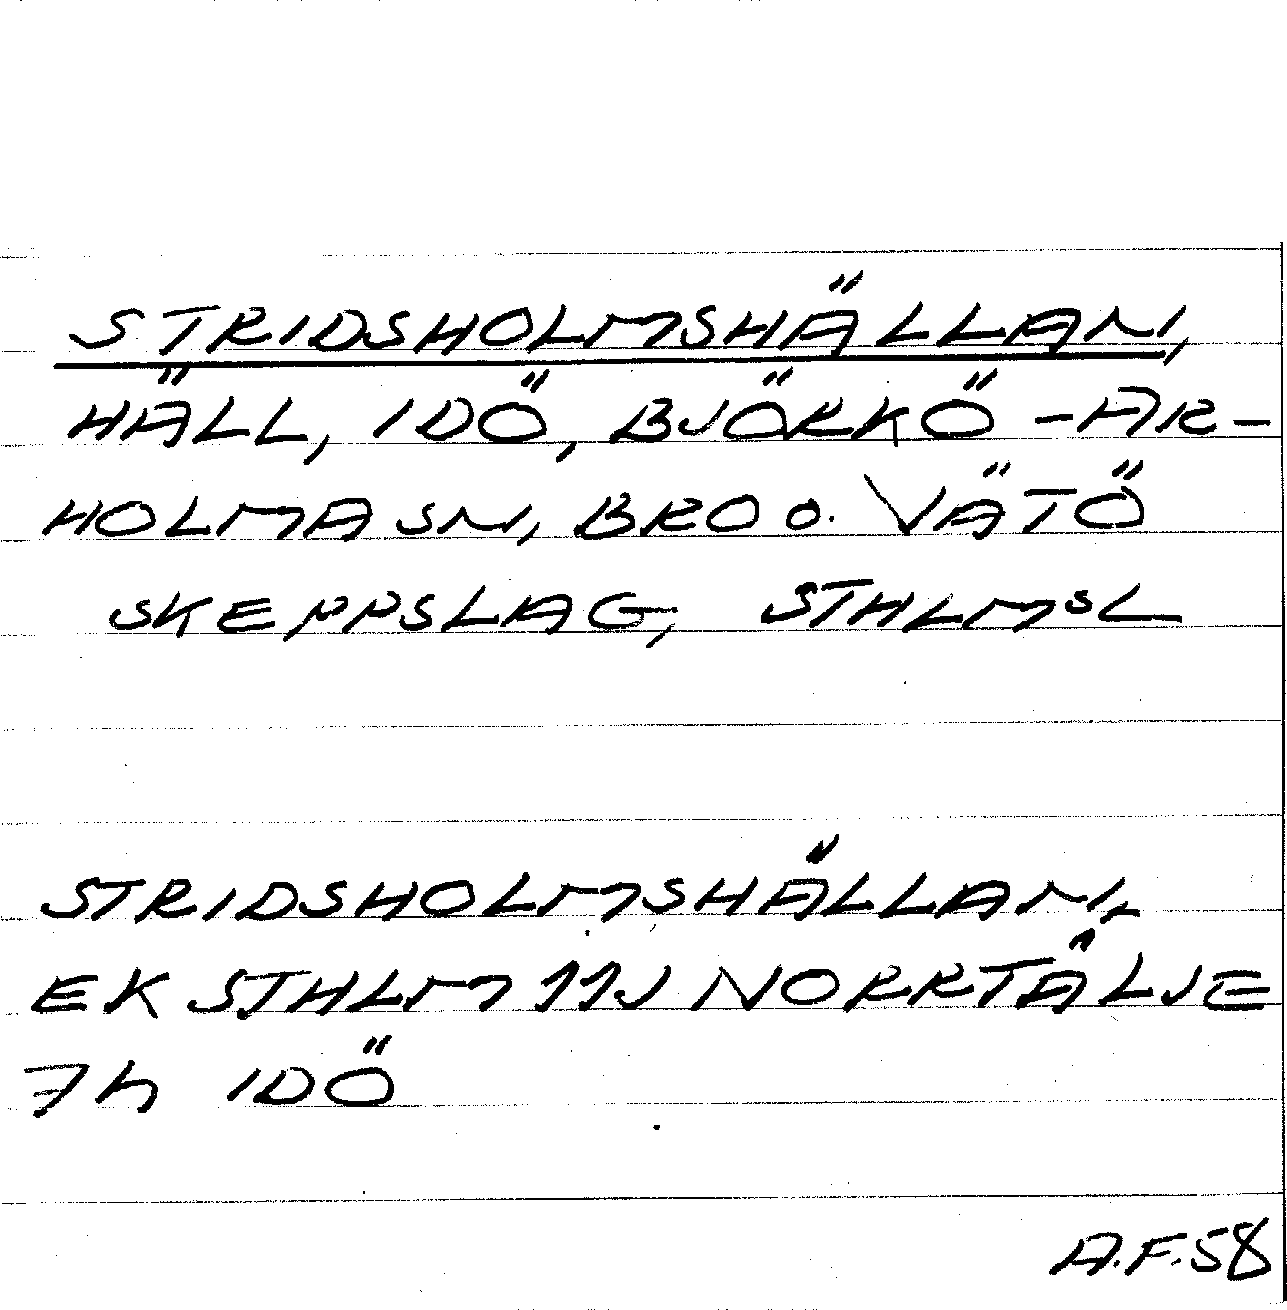 STRIDSHOLMSHÄLLAN,
HÄLL, IDÖ, BJÖRKÖ-AR-
HOLMA SN, BRO O. VÄTÖ
SKEPPSLAG, STHLMSL
STRIDSHOLMSHÄLLAN,
EK STHLM 11J NORRTÄLJE
7h IDÖ
A.F.58